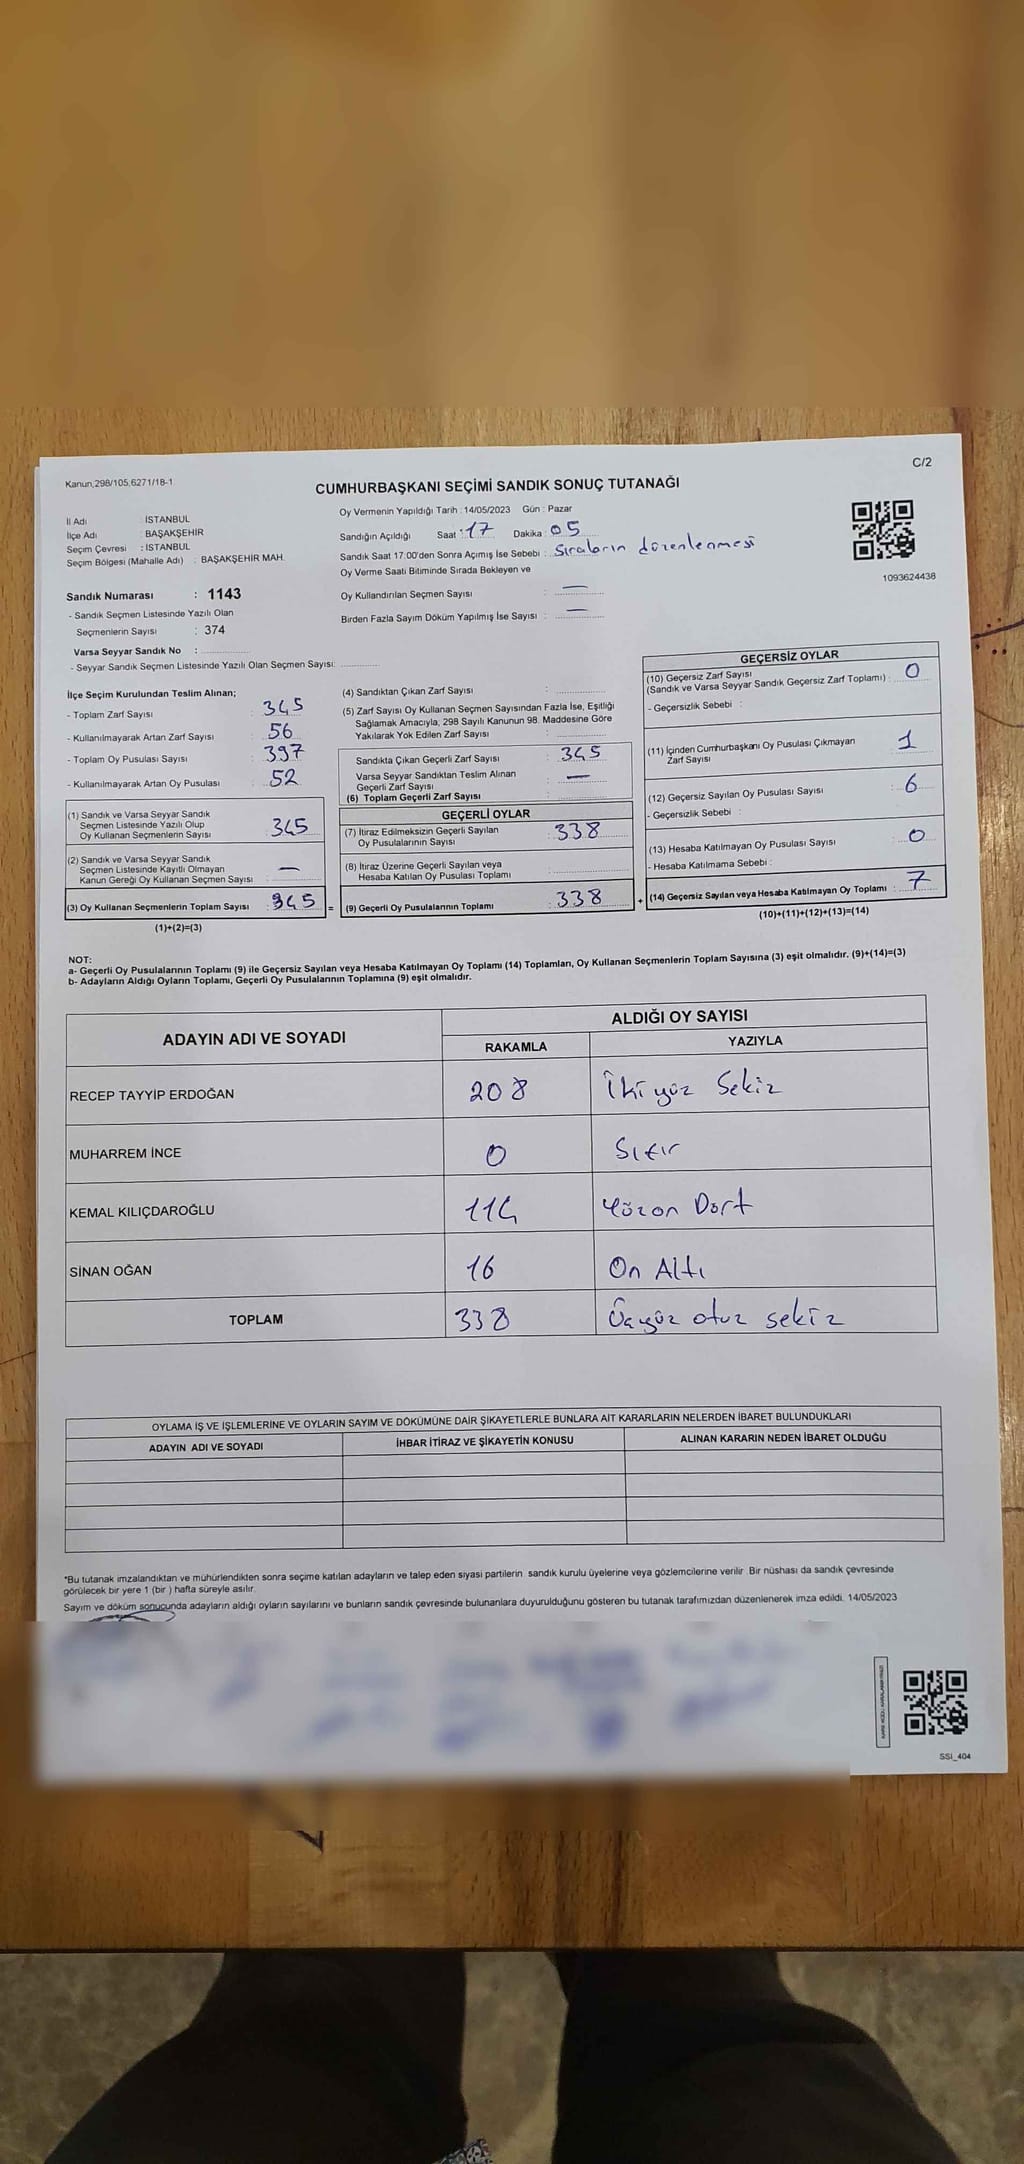 Kanun,298/105;6271/18-1
C/2
CUMHURBAŞKANI SEÇİMİ SANDIK SONUÇ TUTANAĞI
İl Adı İSTANBUL
İlçe Adı : BAŞAKŞEHİR
Seçim Çevresi : İSTANBUL
Seçim Bölgesi (Mahalle Adı) : BAŞAKŞEHİR MAH.
Sandık Numarası : 1143
- Sandık Seçmen Listesinde Yazılı Olan
Seçmenlerin Sayısı : 374
Varsa Seyyar Sandık No :
- Seyyar Sandık Seçmen Listesinde Yazılı Olan Seçmen Sayısı:
Oy Vermenin Yapıldığı Tarih : 14/05/2023 Gün : Pazar
Sandığın Açıldığı Saat : 17 Dakika : 05
Sandık Saat 17:00'den Sonra Açımış İse Sebebi : Sıraların düzenlenmesi
Oy Verme Saati Bitiminde Sırada Bekleyen ve
Oy Kullandırılan Seçmen Sayısı : —
Birden Fazla Sayım Döküm Yapılmış İse Sayısı : —
1093624438
İlçe Seçim Kurulundan Teslim Alınan;
- Toplam Zarf Sayısı : 345
- Kullanılmayarak Artan Zarf Sayısı : 56
- Toplam Oy Pusulası Sayısı : 397
- Kullanılmayarak Artan Oy Pusulası : 52
(1) Sandık ve Varsa Seyyar Sandık
Seçmen Listesinde Yazılı Olup
Oy Kullanan Seçmenlerin Sayısı : 345
(2) Sandık ve Varsa Seyyar Sandık
Seçmen Listesinde Kayıtlı Olmayan
Kanun Gereği Oy Kullanan Seçmen Sayısı : —
(3) Oy Kullanan Seçmenlerin Toplam Sayısı : 345 =
(1)+(2)=(3)
(4) Sandıktan Çıkan Zarf Sayısı :
(5) Zarf Sayısı Oy Kullanan Seçmen Sayısından Fazla İse, Eşitliği
Sağlamak Amacıyla, 298 Sayılı Kanunun 98. Maddesine Göre
Yakılarak Yok Edilen Zarf Sayısı :
Sandıkta Çıkan Geçerli Zarf Sayısı : 345
Varsa Seyyar Sandıktan Teslim Alınan
Geçerli Zarf Sayısı : —
(6) Toplam Geçerli Zarf Sayısı :
GEÇERLİ OYLAR
(7) İtiraz Edilmeksizin Geçerli Sayılan
Oy Pusulalarının Sayısı : 338
(8) İtiraz Üzerine Geçerli Sayılan veya
Hesaba Katılan Oy Pusulası Toplamı :
(9) Geçerli Oy Pusulalarının Toplamı : 338 +
GEÇERSİZ OYLAR
(10) Geçersiz Zarf Sayısı
(Sandık ve Varsa Seyyar Sandık Geçersiz Zarf Toplamı) : 0
- Geçersizlik Sebebi :
(11) İçinden Cumhurbaşkanı Oy Pusulası Çıkmayan
Zarf Sayısı : 1
(12) Geçersiz Sayılan Oy Pusulası Sayısı : 6
- Geçersizlik Sebebi :
(13) Hesaba Katılmayan Oy Pusulası Sayısı : 0
- Hesaba Katılmama Sebebi :
(14) Geçersiz Sayılan veya Hesaba Katılmayan Oy Toplamı : 7
(10)+(11)+(12)+(13)=(14)
NOT:
a- Geçerli Oy Pusulalarının Toplamı (9) ile Geçersiz Sayılan veya Hesaba Katılmayan Oy Toplamı (14) Toplamları, Oy Kullanan Seçmenlerin Toplam Sayısına (3) eşit olmalıdır. (9)+(14)=(3)
b- Adayların Aldığı Oyların Toplamı, Geçerli Oy Pusulalarının Toplamına (9) eşit olmalıdır.
ADAYIN ADI VE SOYADI
ALDIĞI OY SAYISI
RAKAMLA YAZIYLA
RECEP TAYYİP ERDOĞAN 208 İkiyüz Sekiz
MUHARREM İNCE 0 Sıfır
KEMAL KILIÇDAROĞLU 114 Yüzon Dört
SİNAN OĞAN 16 On Altı
TOPLAM 338 Üçyüz otuz sekiz
OYLAMA İŞ VE İŞLEMLERİNE VE OYLARIN SAYIM VE DÖKÜMÜNE DAİR ŞİKAYETLERLE BUNLARA AİT KARARLARIN NELERDEN İBARET BULUNDUKLARI
ADAYIN ADI VE SOYADI İHBAR İTİRAZ VE ŞİKAYETİN KONUSU ALINAN KARARIN NEDEN İBARET OLDUĞU
*Bu tutanak imzalandıktan ve mühürlendikten sonra seçime katılan adayların ve talep eden siyasi partilerin sandık kurulu üyelerine veya gözlemcilerine verilir. Bir nüshası da sandık çevresinde
görülecek bir yere 1 (bir ) hafta süreyle asılır.
Sayım ve döküm sonucunda adayların aldığı oyların sayılarını ve bunların sandık çevresinde bulunanlara duyurulduğunu gösteren bu tutanak tarafımızdan düzenlenerek imza edildi. 14/05/2023
SSI_404